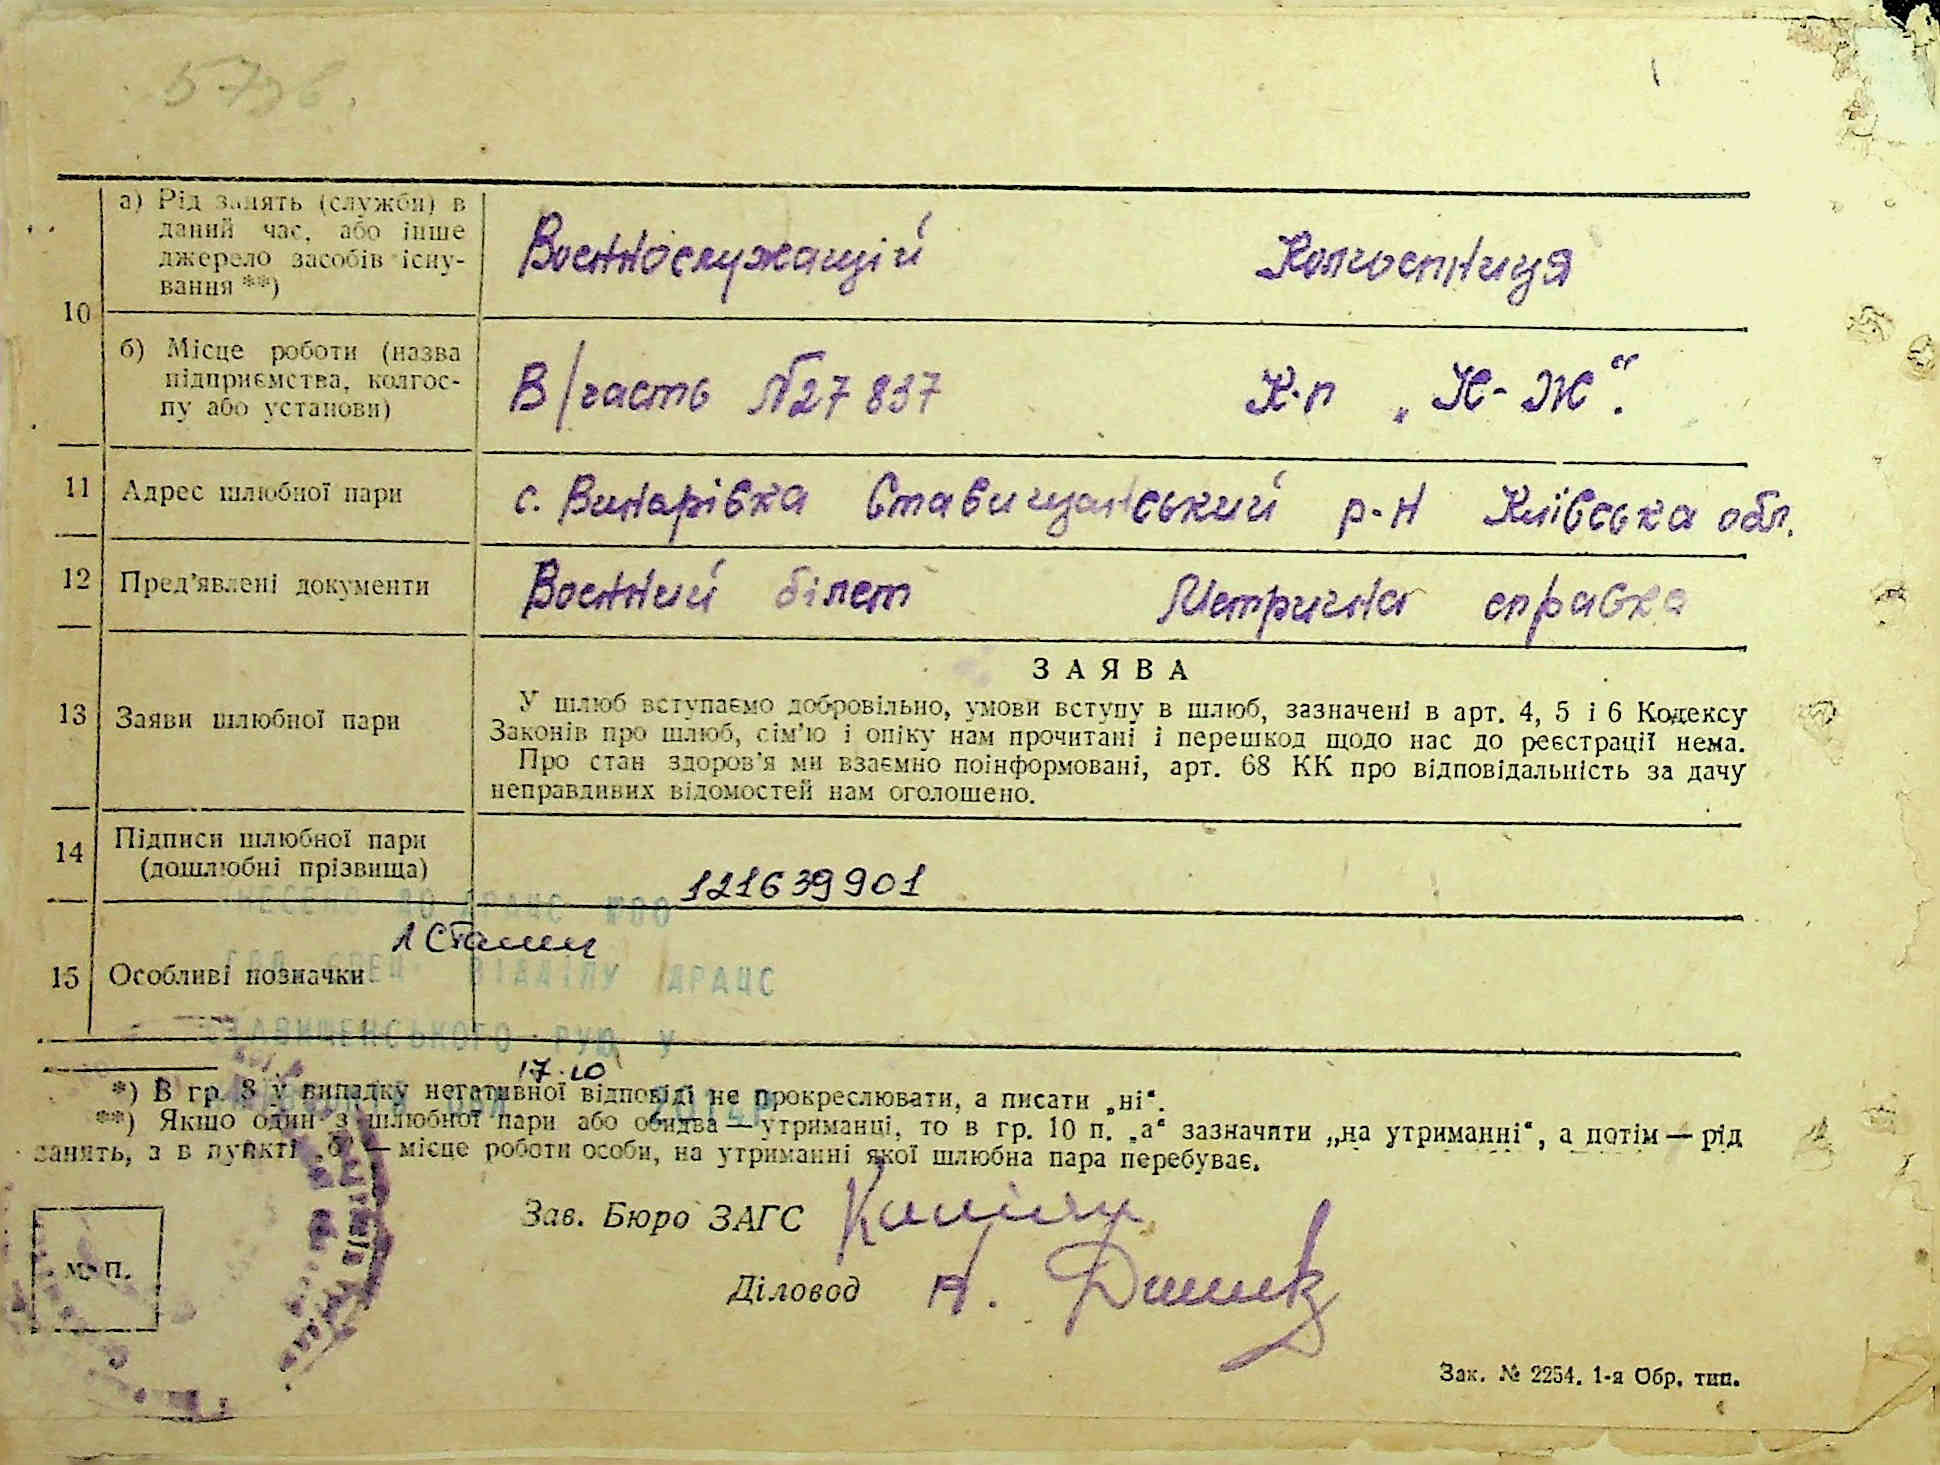 10
а) Рід занять (служби) в
даний час, або інше
джерело засобів існу-
вання **)
Военнослужащій
Колгоспниця
б) Місце роботи (назва
підприємства, колгос-
пу або установи)
В/часть №27837
К-п „Н-Ж“.
11 Адрес шлюбної пари
с. Винарівка Ставищанський р-н Київська обл.
12 Пред’явлені документи
Военний білет
Метрична справка
13 Заяви шлюбної пари
ЗАЯВА
У шлюб вступаємо добровільно, умови вступу в шлюб, зазначені в арт. 4, 5 і 6 Кодексу
Законів про шлюб, сім’ю і опіку нам прочитані і перешкод щодо нас до реєстрації нема.
Про стан здоров’я ми взаємно поінформовані, арт. 68 КК про відповідальність за дачу
неправдивих відомостей нам оголошено.
14 Підписи шлюбної пари
(дошлюбні прізвища)
121639901
ВНЕСЕНО ДО ДРАЦС №00
15 Особливі позначки
ВІДДІЛУ ДРАЦС
СТАВИЩЕНСЬКОГО РУЮ У
17.10
2014р
*) В гр. 8 у випадку негативної відповіді не прокреслювати, а писати „ні“.
**) Якщо один з шлюбної пари або обидва — утриманці, то в гр. 10 п. „а“ зазначити „на утриманні“, а потім — рід
занять, а в пункті „б“ — місце роботи особи, на утриманні якої шлюбна пара перебуває.
Зав. Бюро ЗАГС
Діловод
м. п.
Зак. № 2254. 1-я Обр. тип.